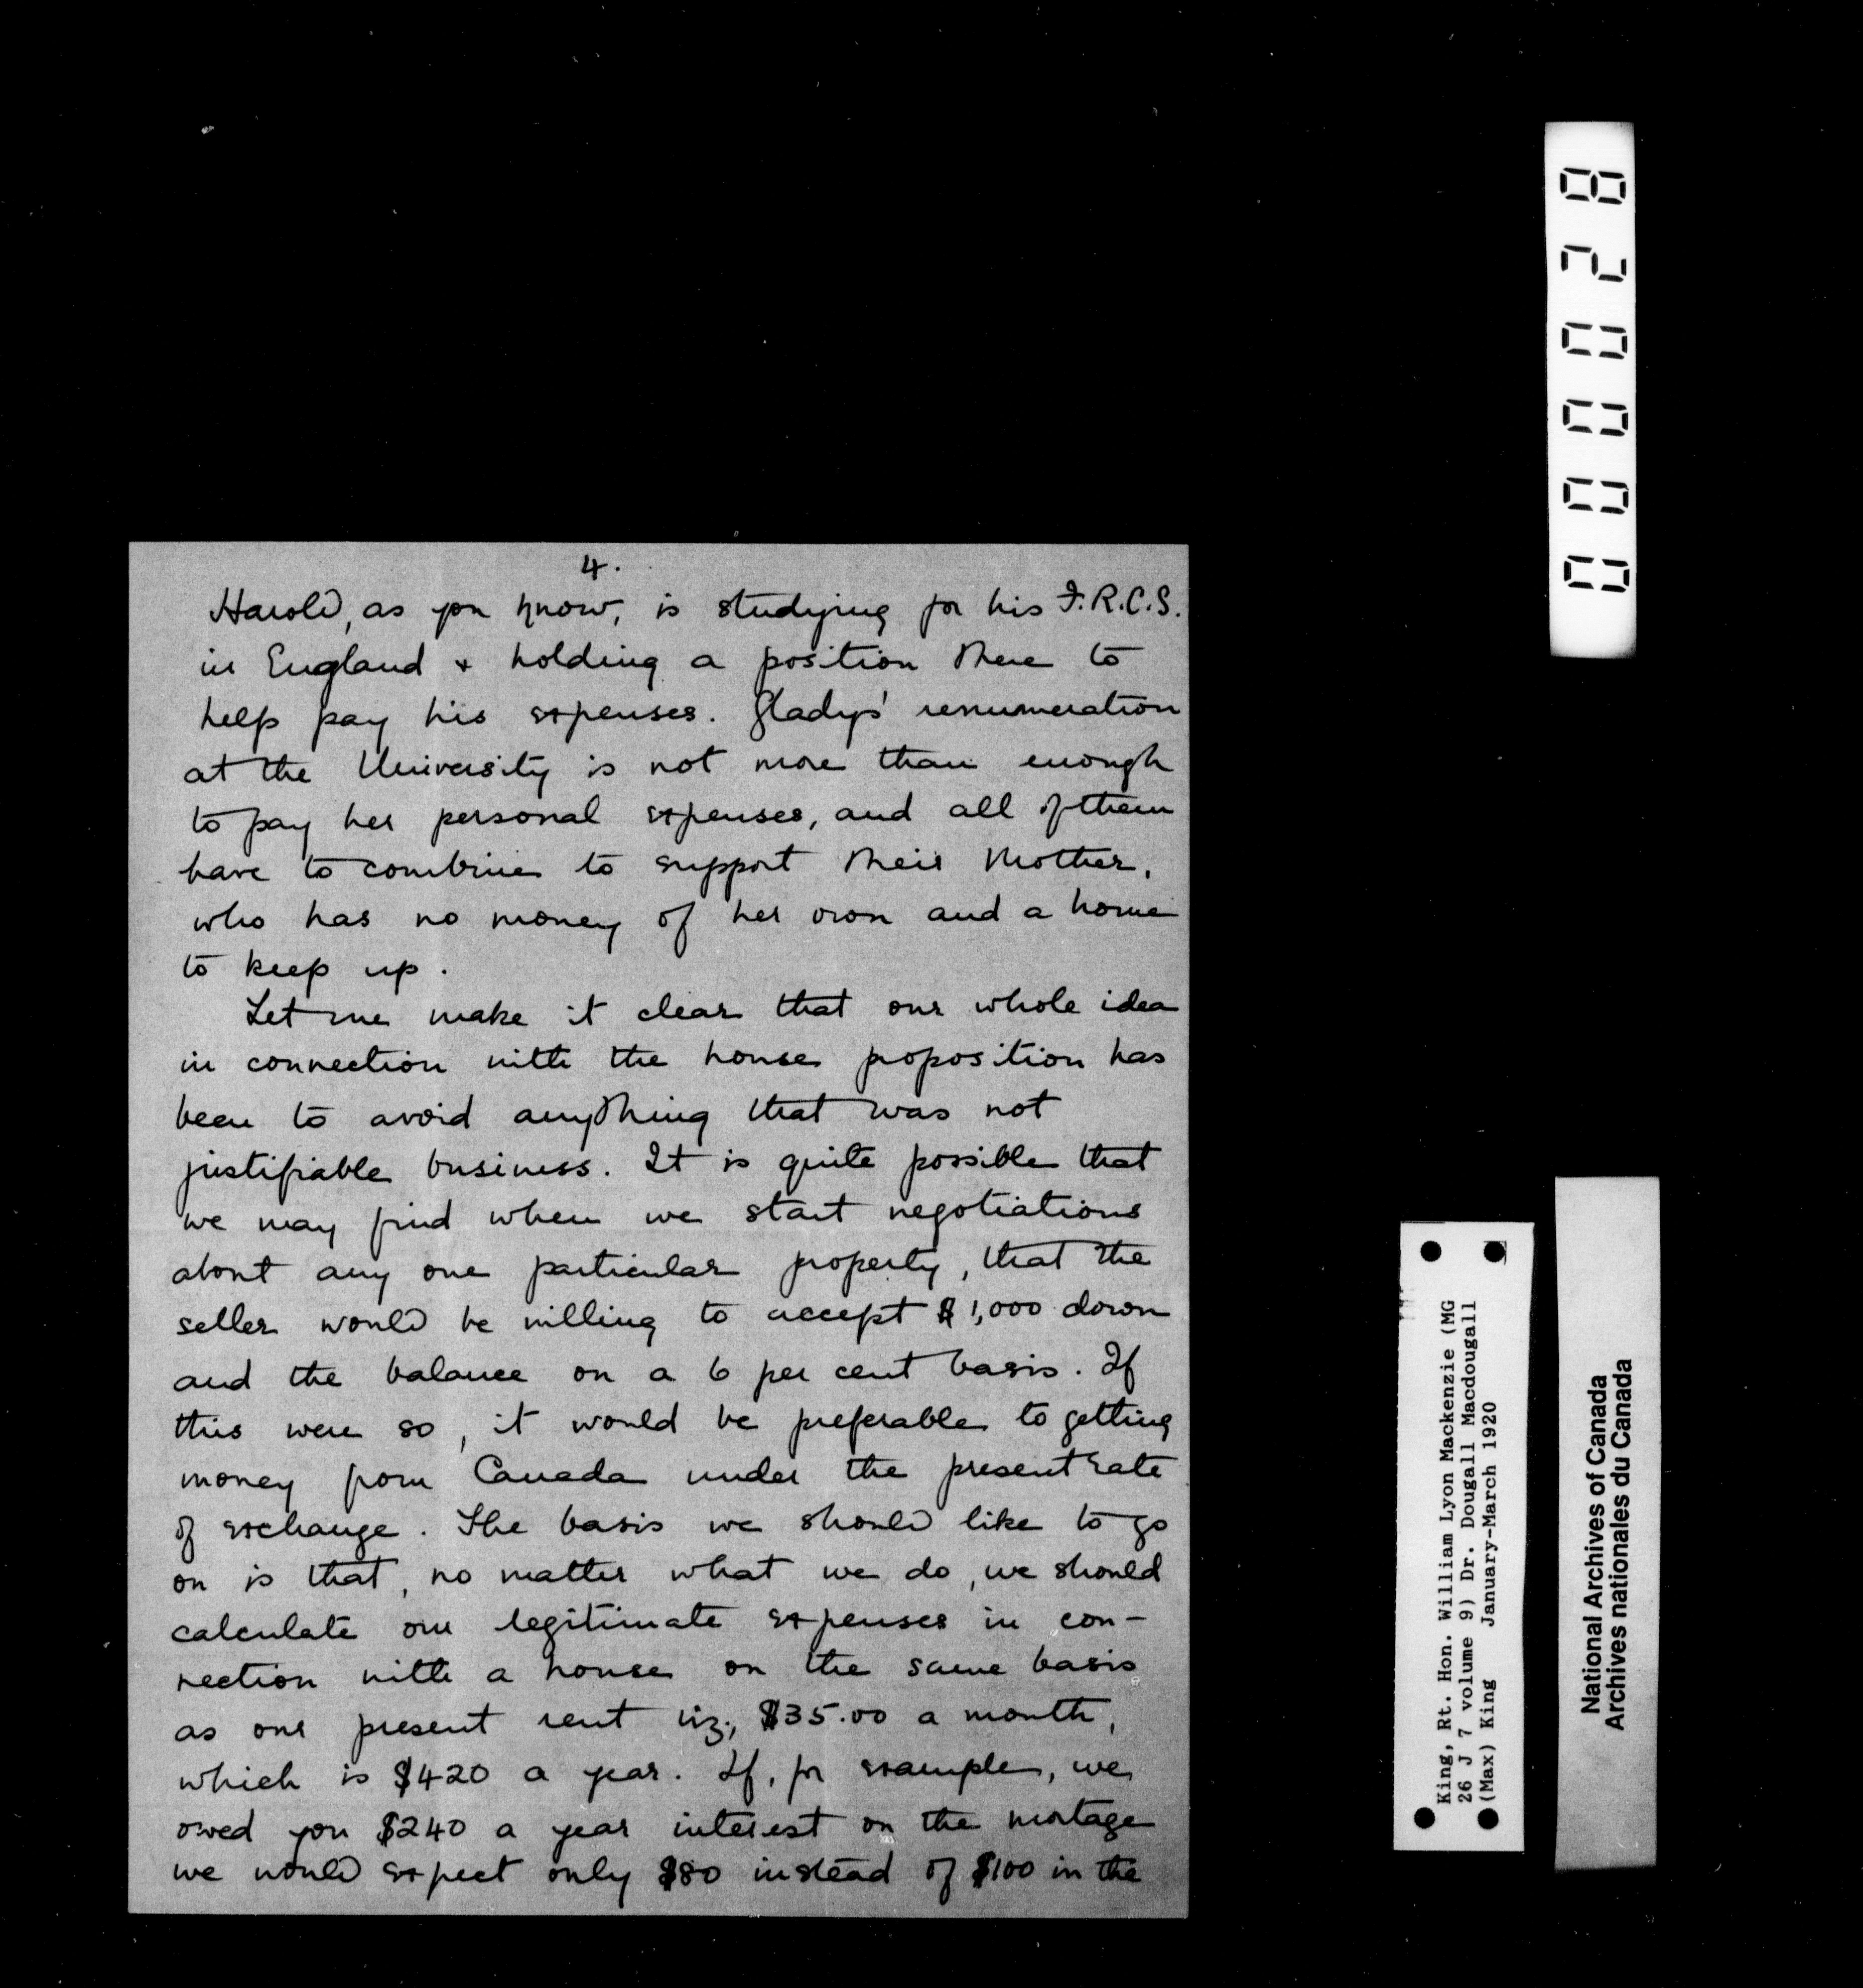 4.
Harold, as you know, is studying for his F.R.C.S.
in England + holding a position there to
help pay his expenses. Gladys' renumeration
at the University is not more than enough
to pay her personal expenses, and all of them
have to combine to support their Mother,
who has no money of her own and a home
to keep up.
Let me make it clear that our whole idea
in connection with the house proposition has
been to avoid anything that was not
justifiable business. It is quite possible that
we may find when we start negotiations
about any one particular property, that the
seller would be willing to accept $1,000 down
and the balance on a 6 per cent basis. If
this were so, it would be preferable to getting
money from Canada under the present rate
of exchange. The basis we should like to go
on is that, no matter what we do, we should
calculate our legitimate expenses in con-
nection with a house on the same basis
as our present rent viz., $35.00 a month,
which is $420 a year. If, for example, we
owed you $240 a year interest on the mortage
we would expect only $80 instead of $100 in the
000028
King, Rt. Hon. William Lyon Mackenzie (MG
26 J 7 volume 9) Dr. Dougall Macdougall
(Max) King January-March 1920
National Archives of Canada
Archives nationales du Canada